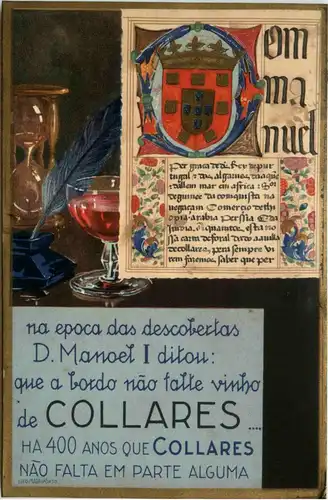 Dom
ma
nuel
Per graça de ds. Rey de pur
tugal z dos algarues daaque
dallem mar em africa
de guinne da conquista na
uegaçam Comercio dethi
opia arabia Persia
India
sa carta de foral dada aa villa
de collares, pera sempre vi
rem fazemos saber que per
na epoca das descobertas
D. Manoel I ditou:
que a bordo não falte vinho
de COLLARES ....
HÁ 400 ANOS QUE COLLARES
NÃO FALTA EM PARTE ALGUMA